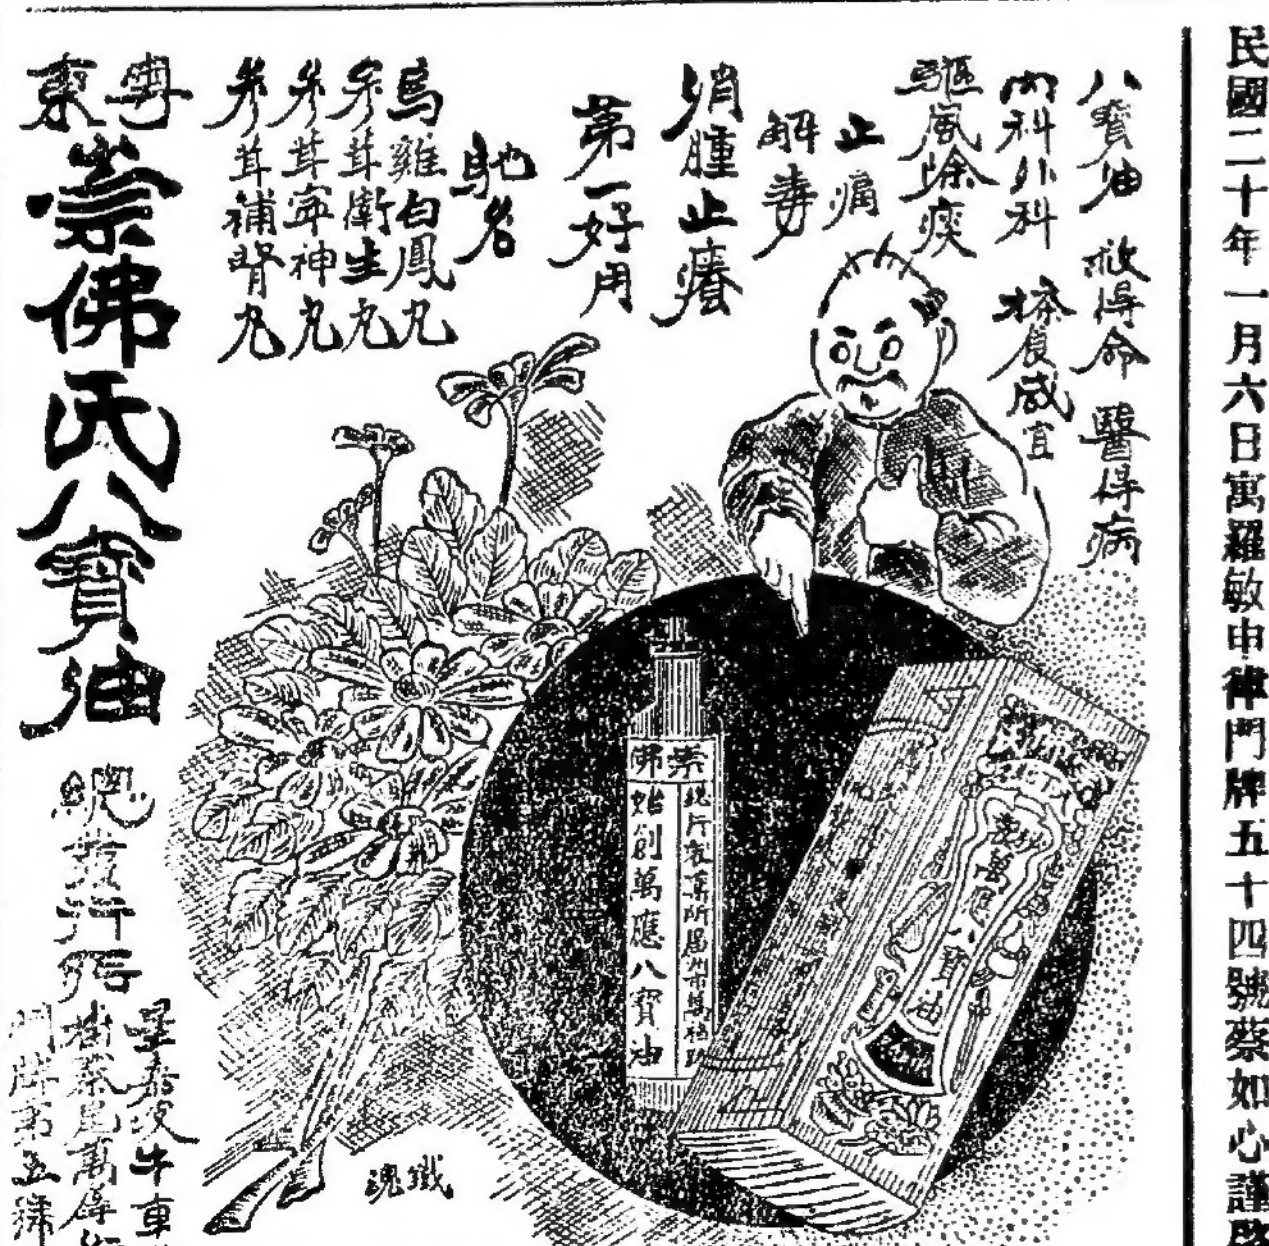 民國二十年一月六日寓羅敏申律門牌五十四號蔡如心謹啓
八寶油 救得命 醫得病
內科外科 搽食咸宜
驅風除痰
止痛
解毒
消腫止癢
第一好用
馳名
烏雞白鳳丸
參茸衛生丸
參茸寧神丸
參茸補腎丸
粵東
崇佛氏八寶油
總發行所
星嘉坡牛車
門牌第五號
崇佛
始創萬應八寶油
八寶油
鐵魂